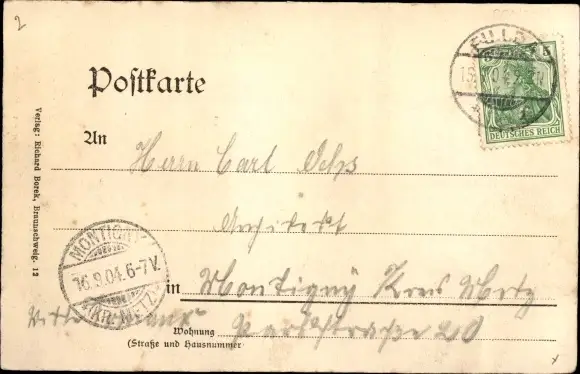 2
FULDA
DEUTSCHES REICH
Postkarte
Verlag: Richard Borek, Braunschweig. 12
An
Herrn Carl Ochs
Architekt
MONTIGNY
16.9.04. 6-7 V.
(KR. METZ)
in Montigny Kreis Metz
Wohnung Parkstraße 20
(Straße und Hausnummer